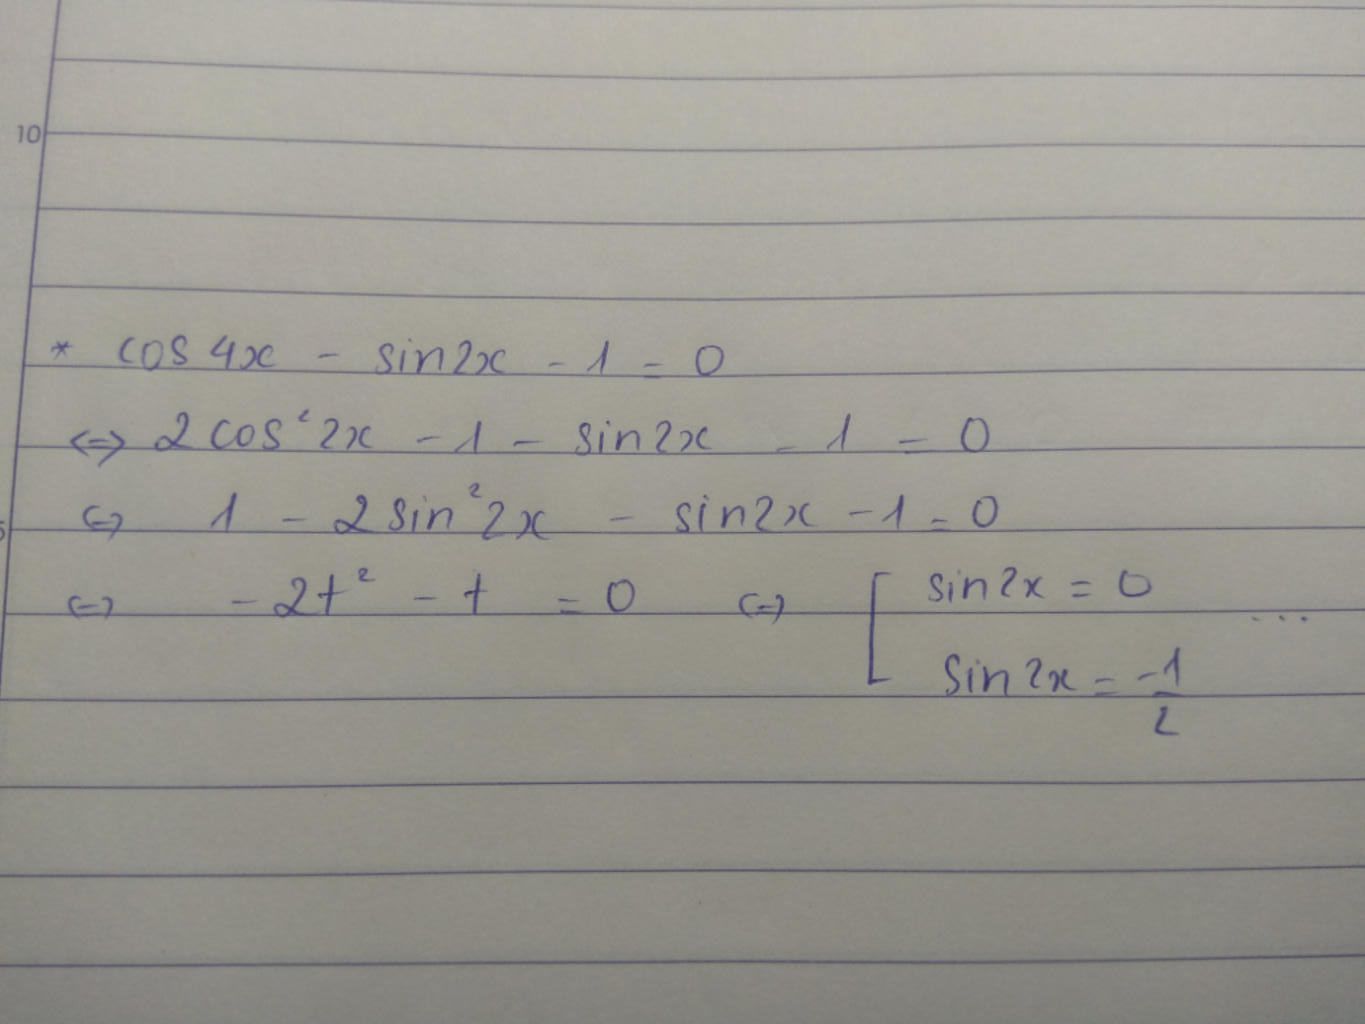 10
* cos 4x - sin2x - 1 = 0
<=> 2 cos² 2x - 1 - sin2x - 1 = 0
<=> 1 - 2 sin² 2x - sin2x - 1 = 0
<=> - 2t² - t = 0 <=> [ sin2x = 0 ...
sin2x = -1/2